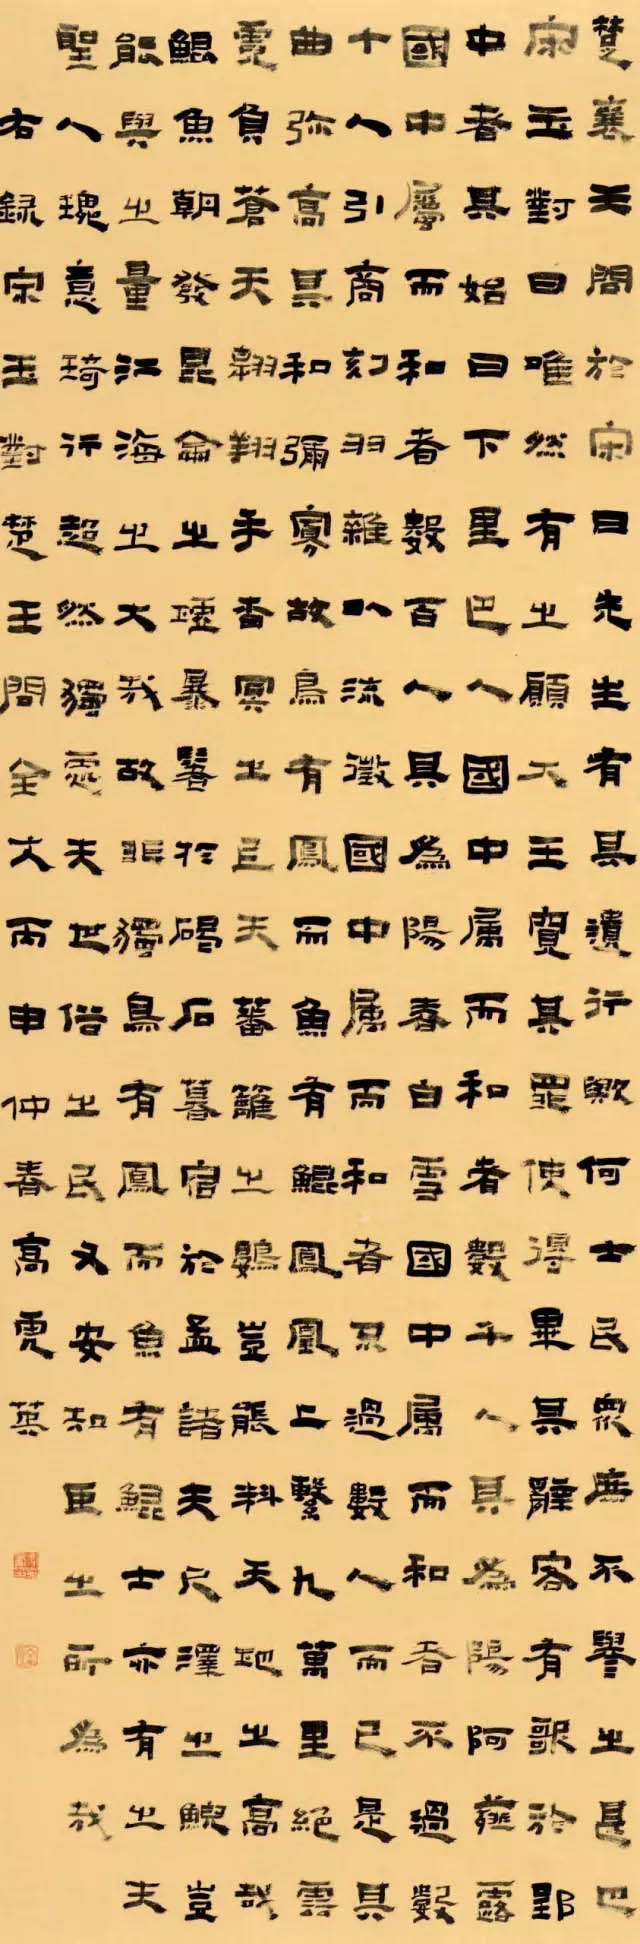 楚襄王問於宋曰先生有其遺行歟何士民衆庶不譽之甚也
宋玉對曰唯然有之願大王寬其罪使得畢其辭客有歌於郢
中者其始曰下里巴人國中屬而和者數千人其為陽阿薤露
國中屬而和者數百人其為陽春白雪國中屬而和者不過數
十人引商刻羽雜以流徵國中屬而和者不過數人而已是其
曲弥高其和彌寡故鳥有鳳而魚有鯤鳳凰上擊九萬里絕雲
霓負蒼天翱翔乎杳冥之上夫蕃籬之鷃豈能料天地之高哉
鯤魚朝發昆侖之墟暴鬐於碣石暮宿於孟諸夫尺澤之鯢豈
能與之量江海之大哉故非獨鳥有鳳而魚有鯤士亦有之夫
聖人瑰意琦行超然獨處夫世俗之民又安知臣之所為哉
右録宋玉對楚王問全文丙申仲春高虎英